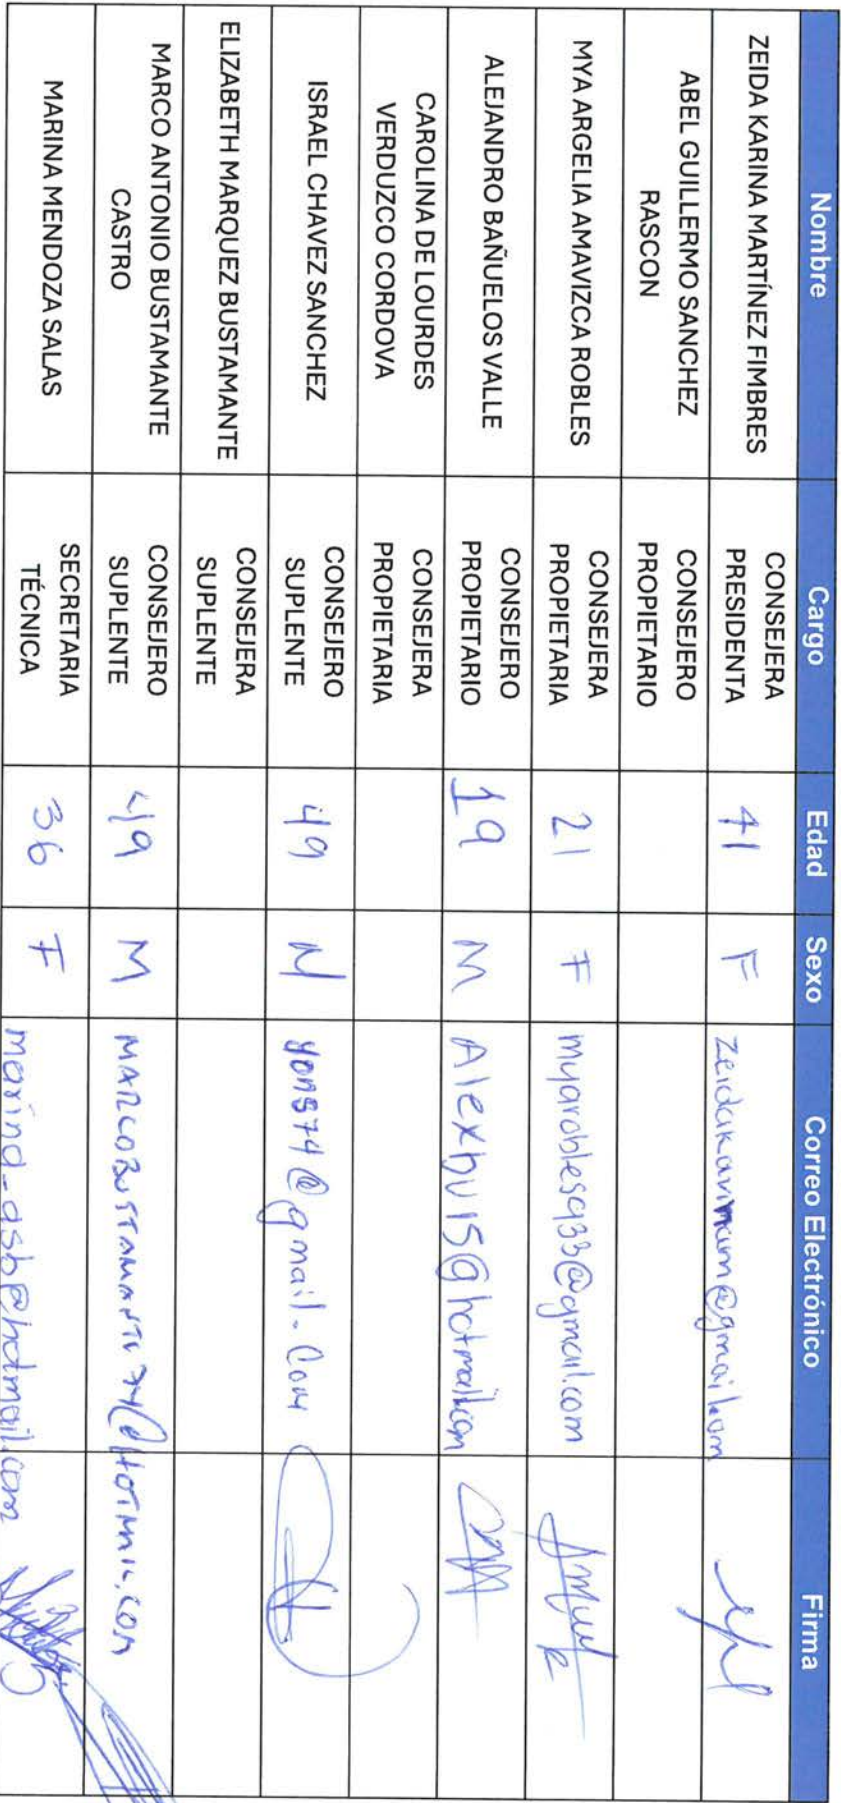 Nombre Cargo Edad Sexo Correo Electrónico Firma
ZEIDA KARINA MARTÍNEZ FIMBRES CONSEJERA PRESIDENTA 41 F zeidakarinam@gmail.com
ABEL GUILLERMO SANCHEZ RASCON CONSEJERO PROPIETARIO
MYA ARGELIA AMAVIZCA ROBLES CONSEJERA PROPIETARIA 21 F myarobles933@gmail.com
ALEJANDRO BAÑUELOS VALLE CONSEJERO PROPIETARIO 19 M Alexbv15@hotmail.com
CAROLINA DE LOURDES VERDUZCO CORDOVA CONSEJERA PROPIETARIA
ISRAEL CHAVEZ SANCHEZ CONSEJERO SUPLENTE 49 M yons74@gmail.com
ELIZABETH MARQUEZ BUSTAMANTE CONSEJERA SUPLENTE
MARCO ANTONIO BUSTAMANTE CASTRO CONSEJERO SUPLENTE 49 M MARCOBUSTAMANTE74@HOTMAIL.COM
MARINA MENDOZA SALAS SECRETARIA TÉCNICA 36 F marina_asb@hotmail.com